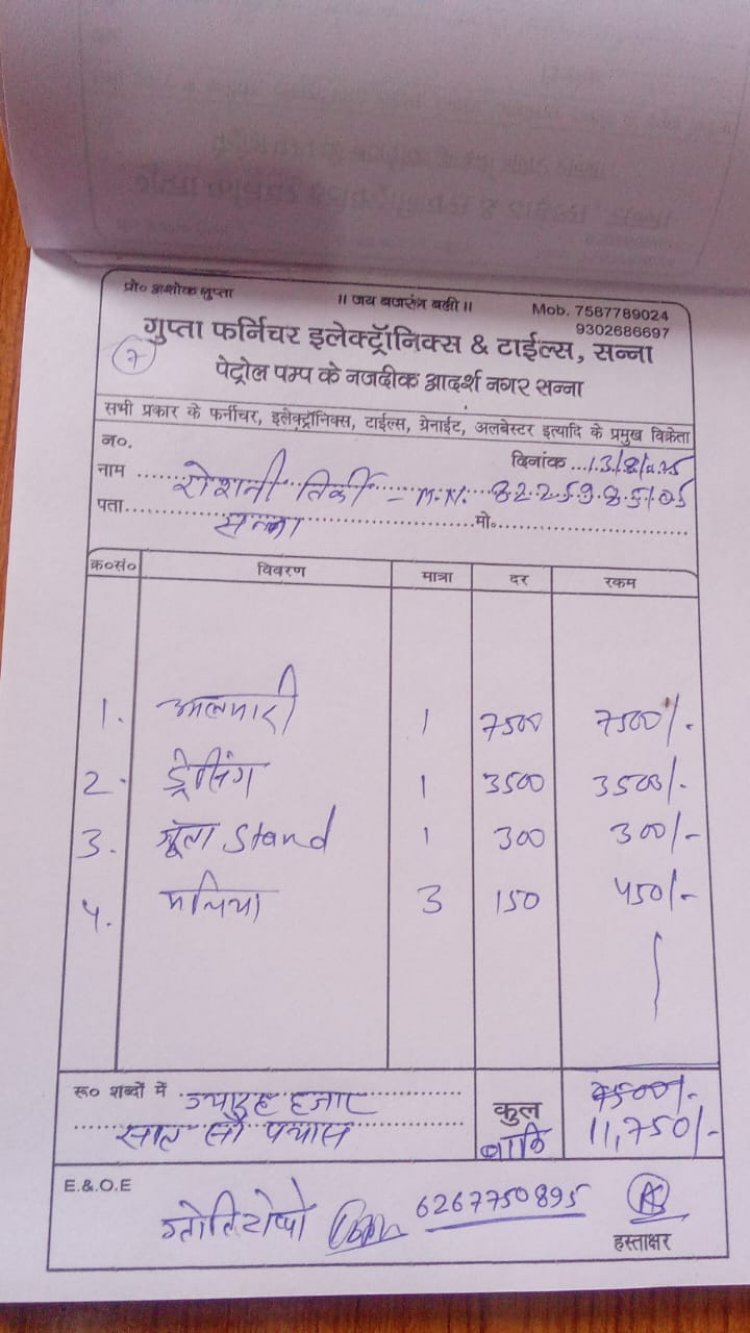 प्रो० अशोक गुप्ता
॥ जय बजरंग बली ॥
Mob. 7587789024
9302686697
गुप्ता फर्निचर इलेक्ट्रॉनिक्स & टाईल्स, सन्ना
7
पेट्रोल पम्प के नजदीक आदर्श नगर सन्ना
सभी प्रकार के फर्नीचर, इलेक्ट्रॉनिक्स, टाईल्स, ग्रेनाईट, अलबेस्टर इत्यादि के प्रमुख विक्रेता
न०.
दिनांक ...13/8/
नाम ......रोशनी तिर्की - M.N. 8225985105
पता......सन्ना......मो०......
क्र०सं० विवरण मात्रा दर रकम
1. आलमारी 1 7500 7500/-
2. ड्रेसिंग 1 3500 3500/-
3. Stand 1 300 300/-
4. 3 150 450/-
रू० शब्दों में ग्यारह हजार
सात सौ पचास
कुल
बाकि
11,750/-
E.&.O.E
6267750895
हस्ताक्षर